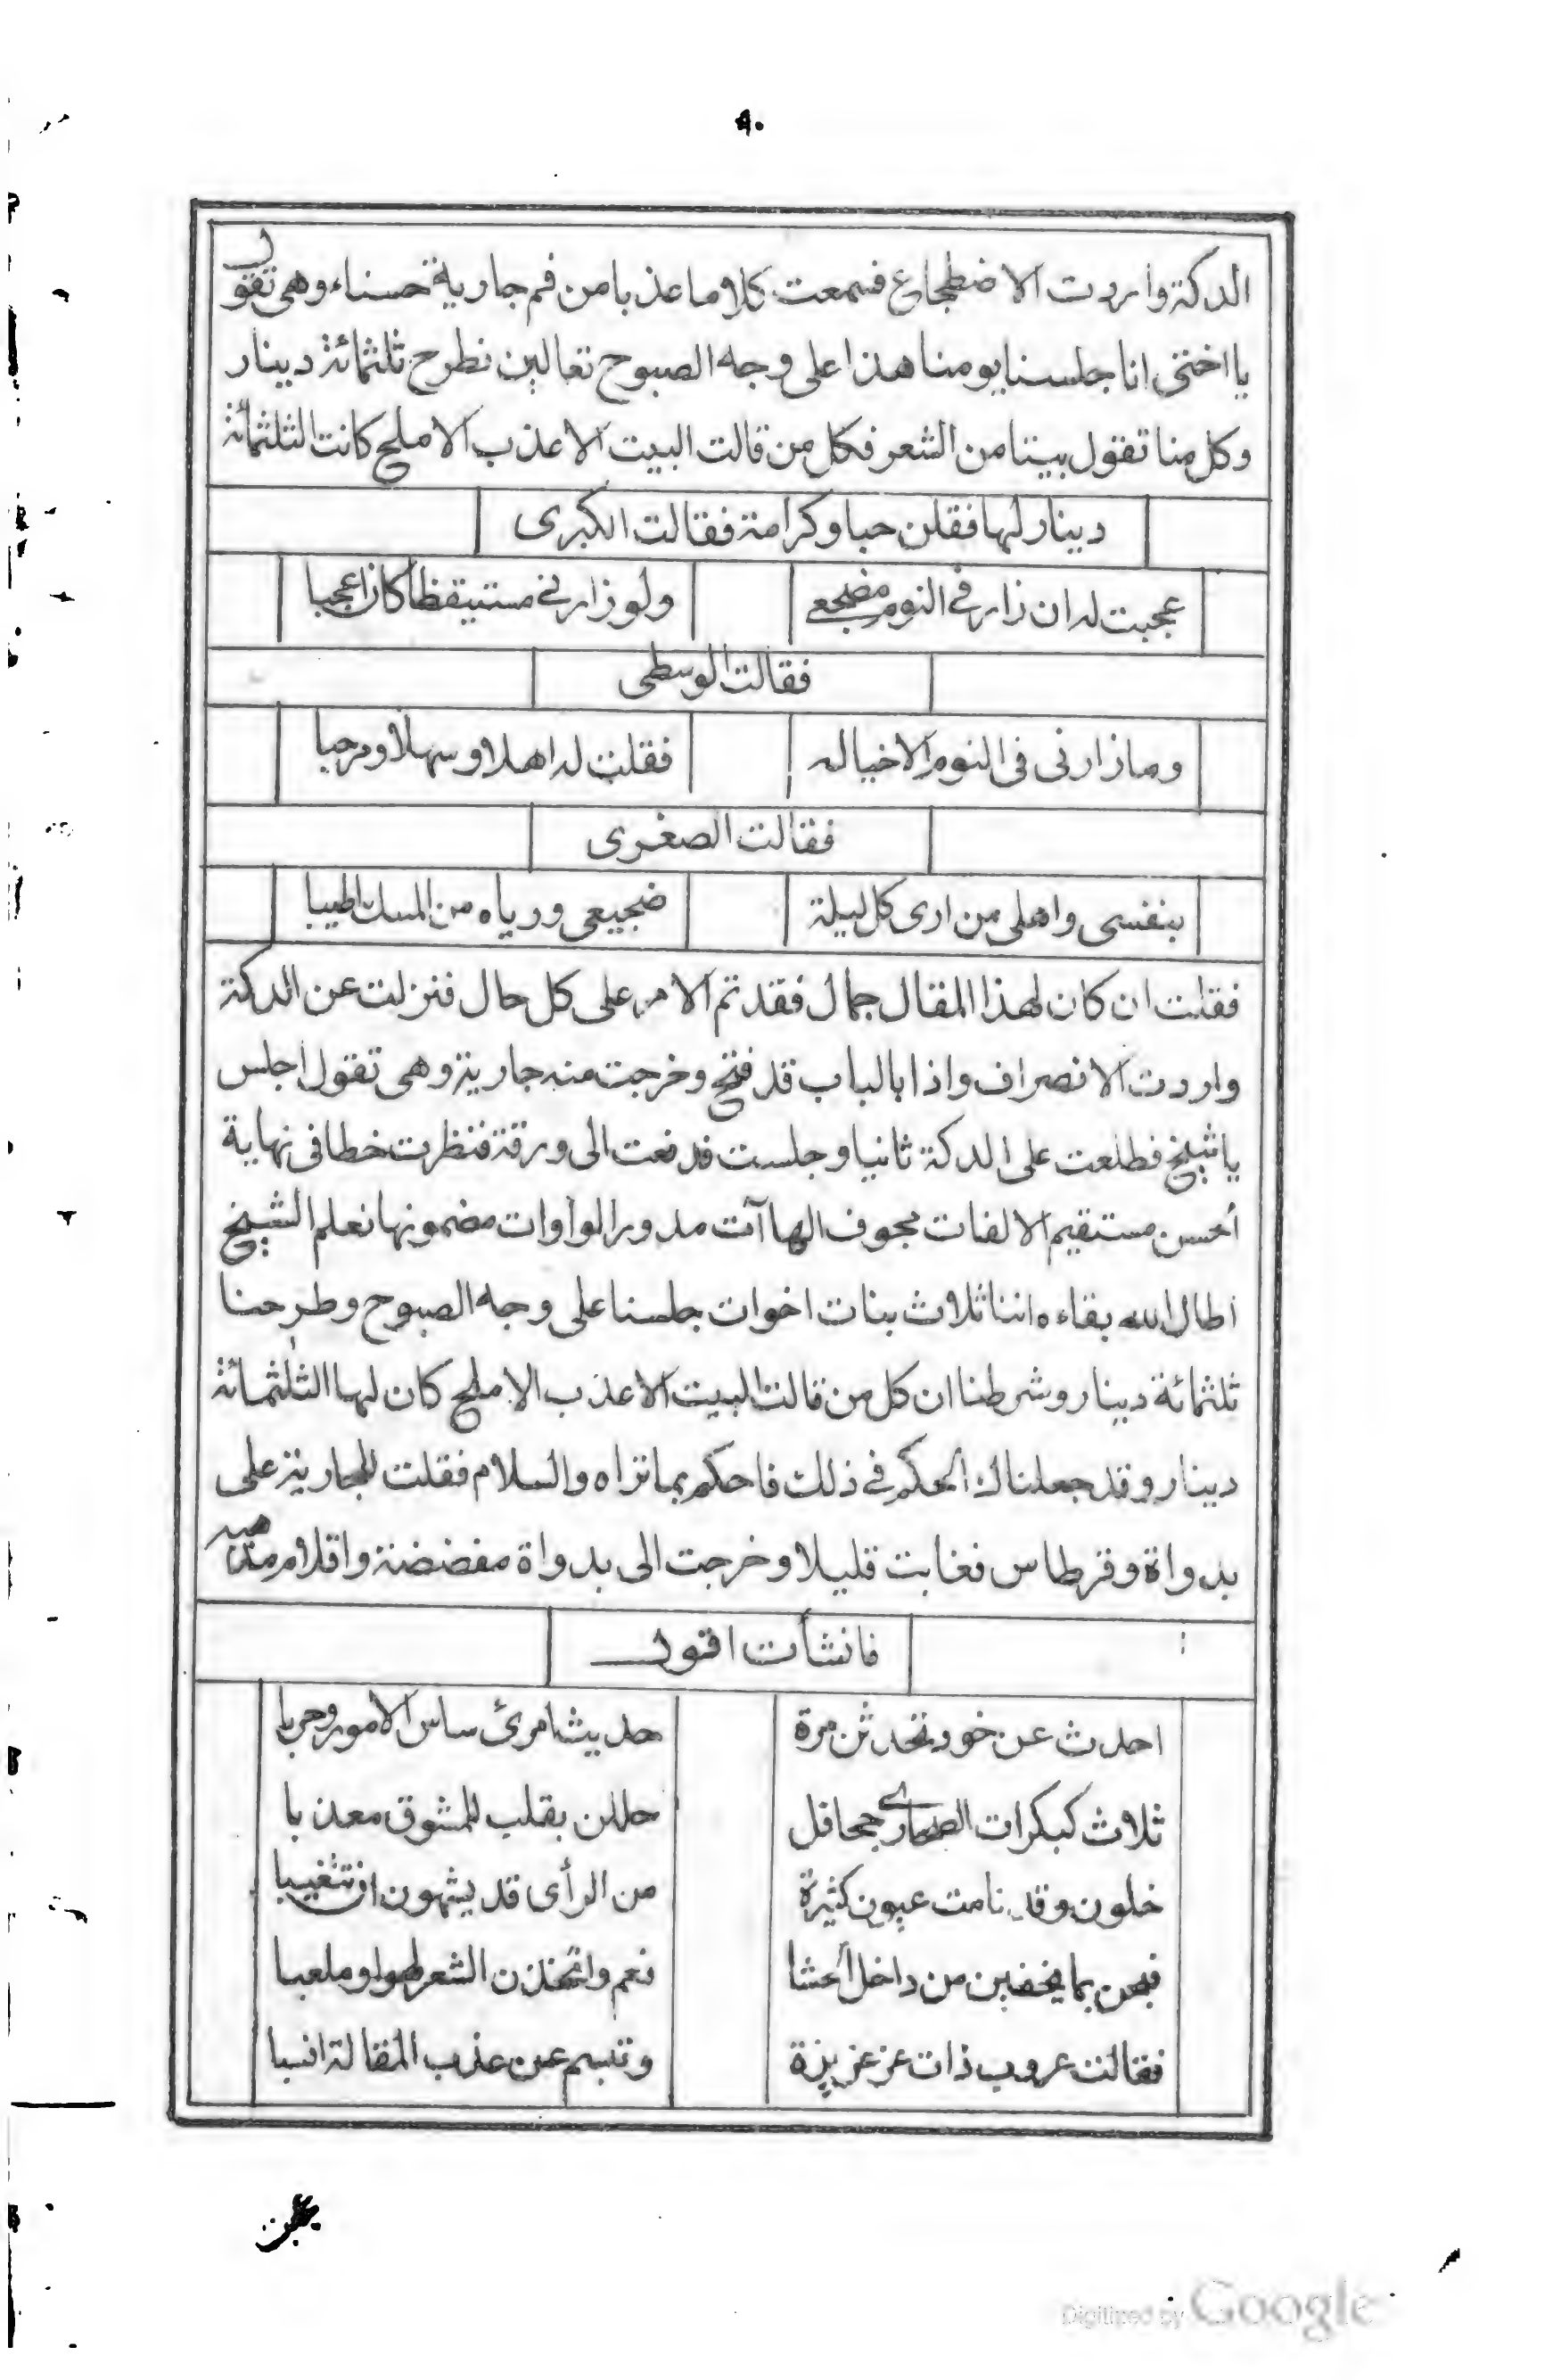 ٩٠
الدكة واردت الاضطجاع فسمعت كلاما عذبا من فم جارية حسناء وهي تقول
يا اختي انا جلسنا يومنا هذا على وجه الصبوح تعالين نطرح ثلثمائة دينار
وكل منا تقول بيتا من الشعر فكل من قالت البيت الاعذب الاملح كانت الثلثمائة
دينار لها فقلن حبا وكرامة فقالت الكبرى
عجبت له ان زار في النوم مضجعي ولو زارني مستيقظا كان اعجبا
فقالت الوسطى
وما زارني في النوم الا خياله فقلت له اهلا وسهلا ومرحبا
فقالت الصغرى
بنفسي واهلي من ارى كل ليلة ضجيعي ورياه من المسك اطيبا
فقلت ان كان لهذا المقال جمال فقد تم الامر على كل حال فنزلت عن الدكة
واردت الانصراف واذا بالباب قد فتح وخرجت منه جارية وهي تقول اجلس
يا شيخ فطلعت على الدكة ثانيا وجلست فدفعت الى ورقة فنظرت خطا في نهاية
الحسن مستقيم الالفات مجوف الهاآت مدور الواوات مضمونها نعلم الشيخ
اطال الله بقاءه اننا ثلاث بنات اخوات جلسنا على وجه الصبوح وطرحنا
ثلثمائة دينار وشرطنا ان كل من قالت البيت الاعذب الاملح كان لها الثلثمائة
دينار وقد جعلناك الحكم في ذلك فاحكم بما تراه والسلام فقلت للجارية على
بدواة وقرطاس فغابت قليلا وخرجت الى بدواة مفضضة واقلام مذهبه
فانشأت اقول
احدث عن خود تحدثن مرة حديث امرئ ساس الامور وجربا
ثلاث كبكرات الصحارى جحافل حللن بقلب للمشوق معذبا
خلون وقد نامت عيون كثيرة من الرأى قد يشهون ان تغيبا
فبحن بما يخفين من داخل الحشا نعم واتخذن الشعر لهوا وملعبا
فقالت عروب ذات عز عزيزة وتبسم عن عذب المقالة اشنبا
عجبت
Digitized by Google